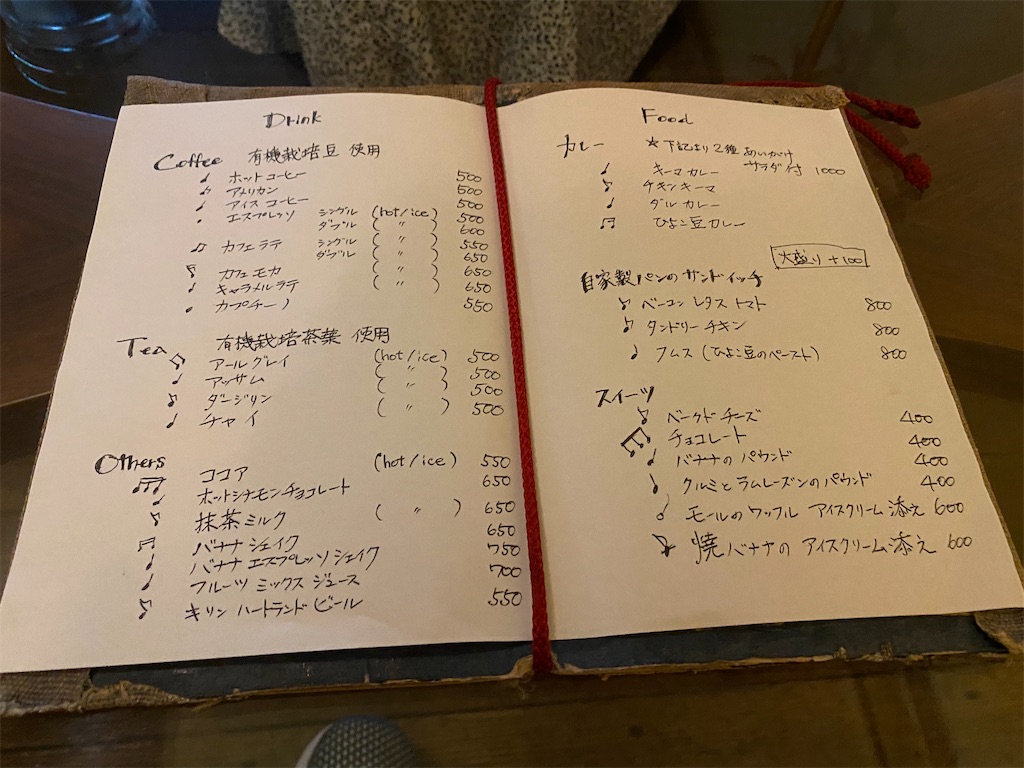 Drink
Coffee 有機栽培豆 使用
ホットコーヒー 500
アメリカン 500
アイスコーヒー 500
エスプレッソ シングル (hot/ice) 500
ダブル ( 〃 ) 600
カフェラテ シングル ( 〃 ) 550
ダブル ( 〃 ) 650
カフェモカ ( 〃 ) 650
キャラメルラテ ( 〃 ) 650
カプチーノ 550
Tea 有機栽培茶葉 使用
アールグレイ (hot/ice) 500
アッサム ( 〃 ) 500
ダージリン ( 〃 ) 500
チャイ ( 〃 ) 500
Others
ココア (hot/ice) 550
ホットシナモンチョコレート 650
抹茶ミルク ( 〃 ) 650
バナナシェイク 650
バナナエスプレッソシェイク 750
フルーツミックスジュース 700
キリン ハートランドビール 550
Food
カレー ★下記より2種 あいがけ
サラダ付 1000
キーマカレー
チキンキーマ
ダルカレー
ひよこ豆カレー
大盛り +100
自家製パンのサンドイッチ
ベーコンレタストマト 800
タンドリーチキン 800
フムス (ひよこ豆のペースト) 800
スイーツ
ベークドチーズ 400
チョコレート 400
バナナのパウンド 400
クルミとラムレーズンのパウンド 400
モールのワッフル アイスクリーム添え 600
焼バナナの アイスクリーム添え 600